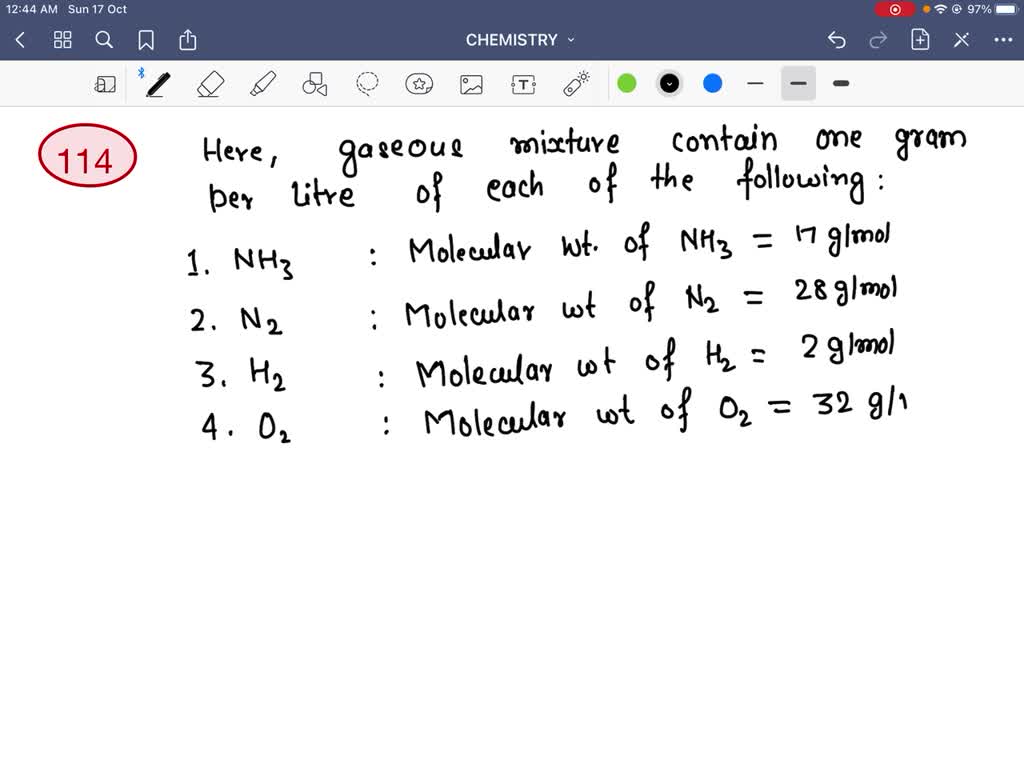 12:44 AM Sun 17 Oct
97%
CHEMISTRY
T
114
Here, gaseous mixture contain one gram
per litre of each of the following :
1. NH3 : Molecular wt. of NH3 = 17 g/mol
2. N2 : Molecular wt of N2 = 28 g/mol
3. H2 : Molecular wt of H2 = 2 g/mol
4. O2 : Molecular wt of O2 = 32 g/1